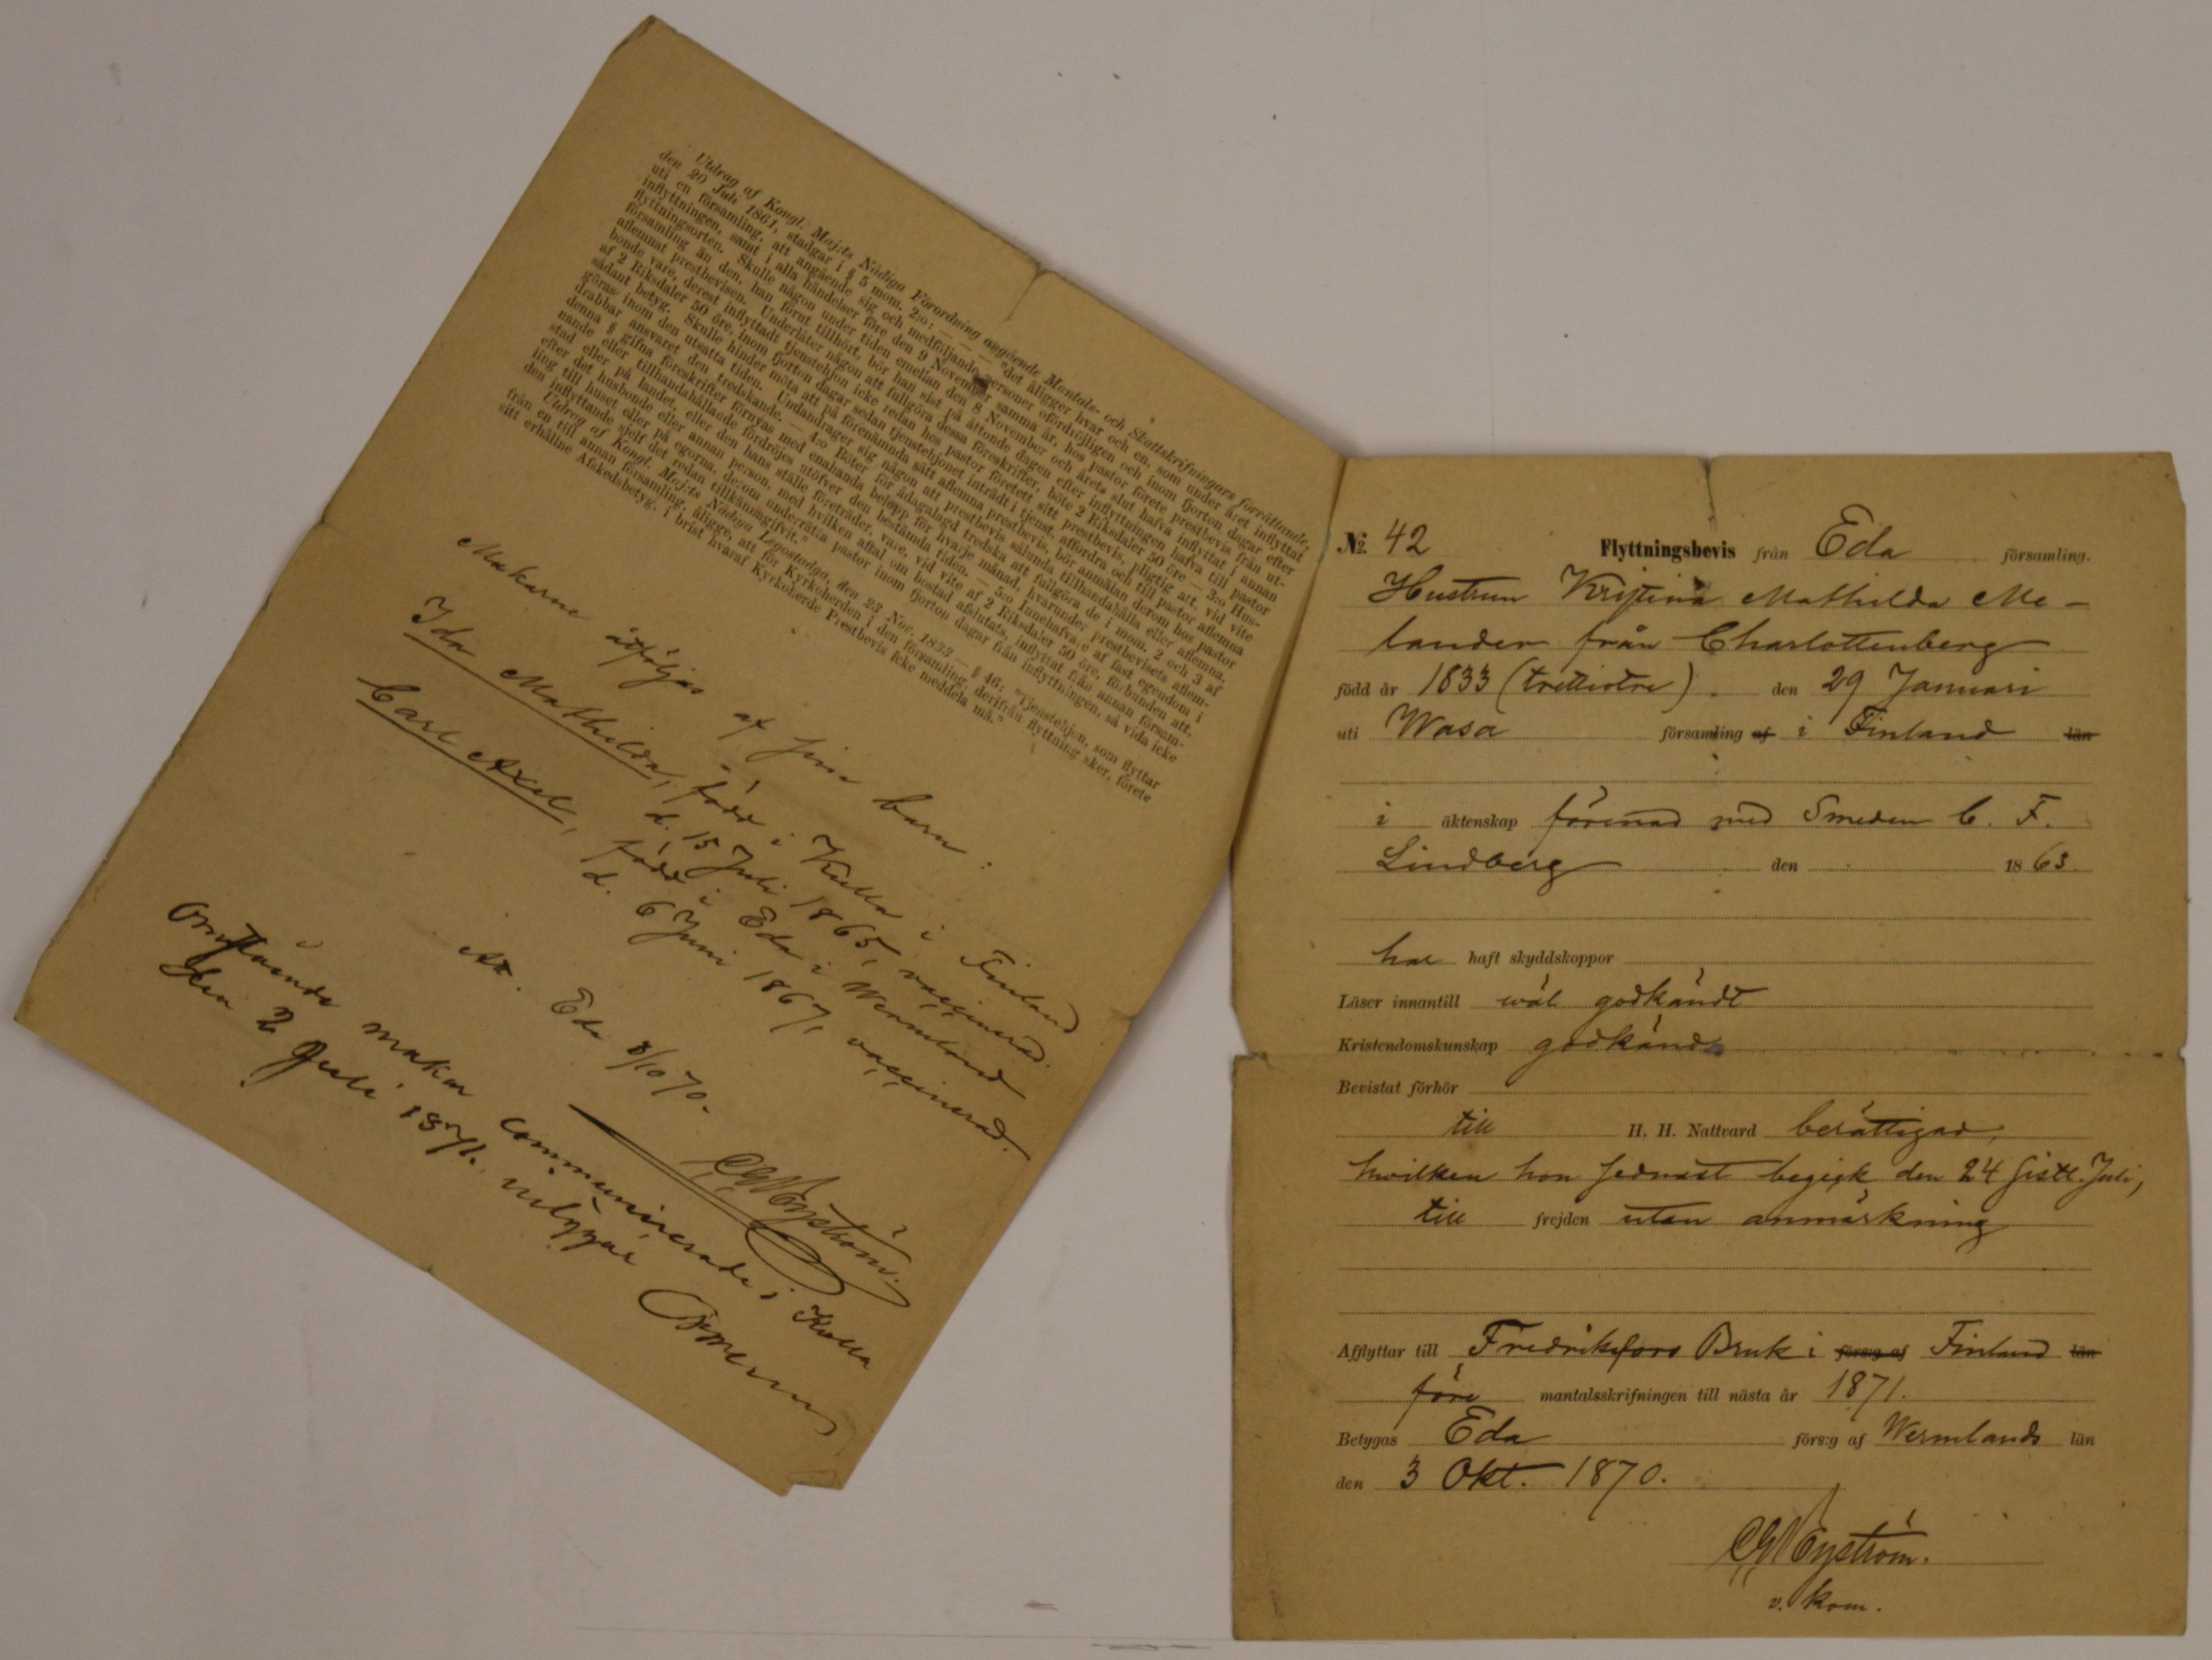 Utdrag af Kongl. Maj:ts Nådiga Förordning angående Mantals- och Skattskrifningars förrättande,
den 20 Juli 1861, stadgar i § 5 mom. 2:o: — — — "det åligger hvar och en, som under året inflyttat
uti en församling, att angående sig och medföljande personer ofördröjligen och inom fjorton dagar efter
inflyttningen, samt i alla händelser före den 9 November samma år, hos pastor förete prestbevis från ut-
flyttningsorten. Skulle någon under tiden emellan den 8 November och årets slut hafva inflyttat i annan
församling än den, han förut tillhört, bör han sist på åttonde dagen efter inflyttningen hafva till pastor
aflemnat prestbevisen. Underlåter någon att fullgöra dessa föreskrifter, böte 2 Riksdaler 50 öre — 3:o Hus-
bonde vare, derest inflyttadt tjenstehjon icke redan hos pastor företett sitt prestbevis, pligtig att, vid vite
af 2 Riksdaler 50 öre, inom fjorton dagar sedan tjenstehjonet inträdt i tjenst, affordra och till pastor aflemna
sådant betyg. Skulle hinder möta att på förenämnda sätt aflemna prestbevis, bör anmälan derom hos pastor
göras inom den utsatta tiden. Undandrager sig någon att prestbevis sålunda tillhandahålla eller aflemna,
drabbar ansvaret den tredskande. — 4:o Böter för ådagalagd tredska att fullgöra de i mom. 2 och 3 af
denna § gifna föreskrifter förnyas med enahanda belopp för hvarje månad, hvarunder prestbevisets aflem-
nande eller tillhandahållande fördröjes utöfver den bestämda tiden. — 5:o Innehafvare af fast egendom i
stad eller på landet, eller den hans ställe företräder, vare, vid vite af 2 Riksdaler 50 öre, förbunden att,
efter det husbonde eller annan person, med hvilken aftal om bostad afslutats, inflyttat från annan försam-
ling till huset eller på egorna, derom underrätta pastor inom fjorton dagar från inflyttningen, så vida icke
den inflyttande sjelf det redan tillkännagifvit."
Utdrag af Kongl. Maj:ts Nådiga Legostadga, den 23 Nov. 1833 — § 46: "Tjenstehjon, som flyttar
från en till annan församling, åligge, att för Kyrkoherden i den församling, derifrån flyttning sker, förete
sitt erhållne Afskedsbetyg, i brist hvaraf Kyrkoherde Prestbevis icke meddela må."
Makarne åtföljas af sina barn:
Ida Mathilda, född i Kulla i Finland
d. 15 Juli 1865, vaccinerad.
Carl Axel, född i Eda i Wermland
d. 6 Juni 1867, vaccinerad.
Att. Eda 3/10 70.
CGNyström.
Omstående makar communicerade i Kulla
den 2 Juli 1871. intygar
№ 42 Flyttningsbevis från Eda församling.
Hustrun Kristina Mathilda Me-
lander från Charlottenberg
född år 1833 (trettiotre) den 29 Januari
uti Wasa församling af i Finland län
i äktenskap förenad med Smeden C. F.
Lindberg den 1863.
har haft skyddskoppor
Läser innantill wäl godkändt
Kristendomskunskap godkänd
Bevistat förhör
till H. H. Nattvard berättigad,
hwilken hon sednast begick den 24 sistl. Juli,
till frejden utan anmärkning
Afflyttar till Fredriksfors Bruk i förs:g af Finland län
före mantalsskrifningen till nästa år 1871.
Betygas Eda förs:g af Wermlands län
den 3 Okt. 1870.
CGNyström.
v. kom.